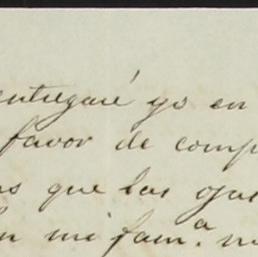 entregaré yo en
favor de comp
s que las ojas
n mi fam.ª m